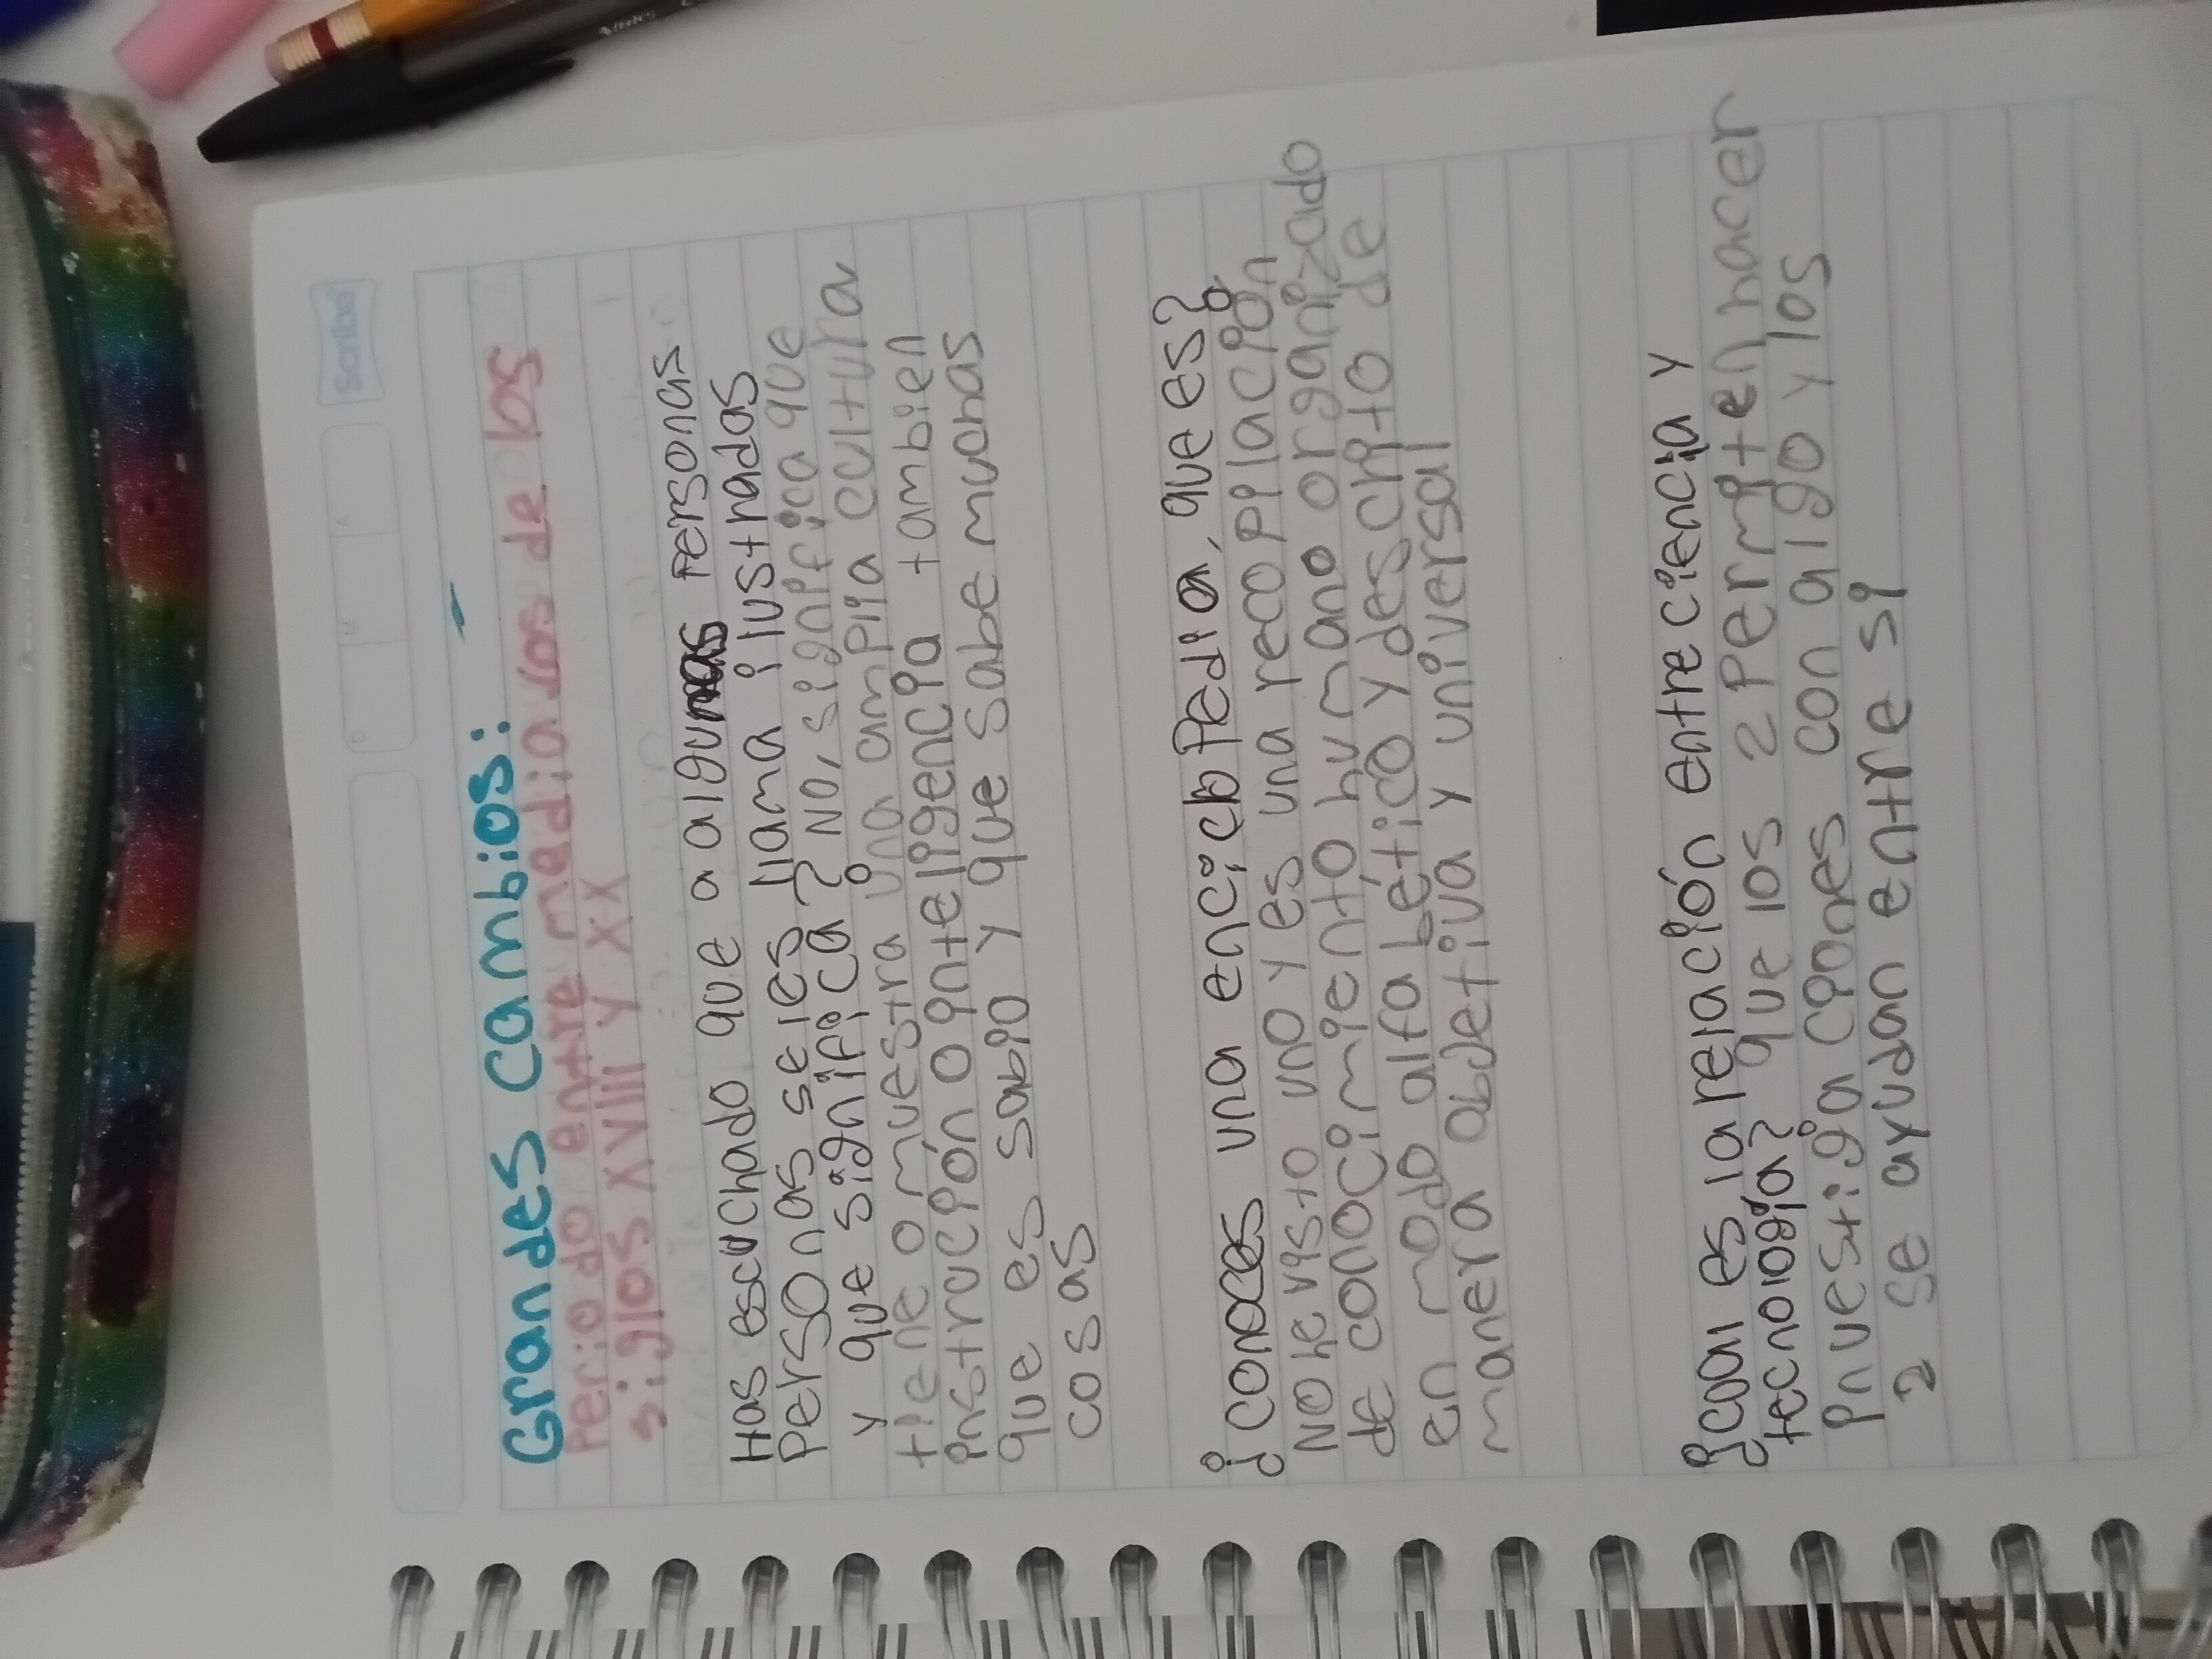 Scribe
D M A
Grandes cambios:
Periodo entre mediados de los
siglos XVIII y XX
Has escuchado que a algunas personas
personas se les llama ilustrados
y que significa? No, significa que
tiene o muestra una amplia cultura
instrucción o inteligencia tambien
que es sabio y que sabe muchas
cosas
¿conoces una enciclopedia, que es?
No he visto uno y es una recopilación
de conocimiento humano organizado
en modo alfabético y descrito de
manera objetiva y universal
¿cual es la relación entre ciencia y
tecnologia? que los 2 permiten hacer
investigaciones con algo y los
2 se ayudan entre si